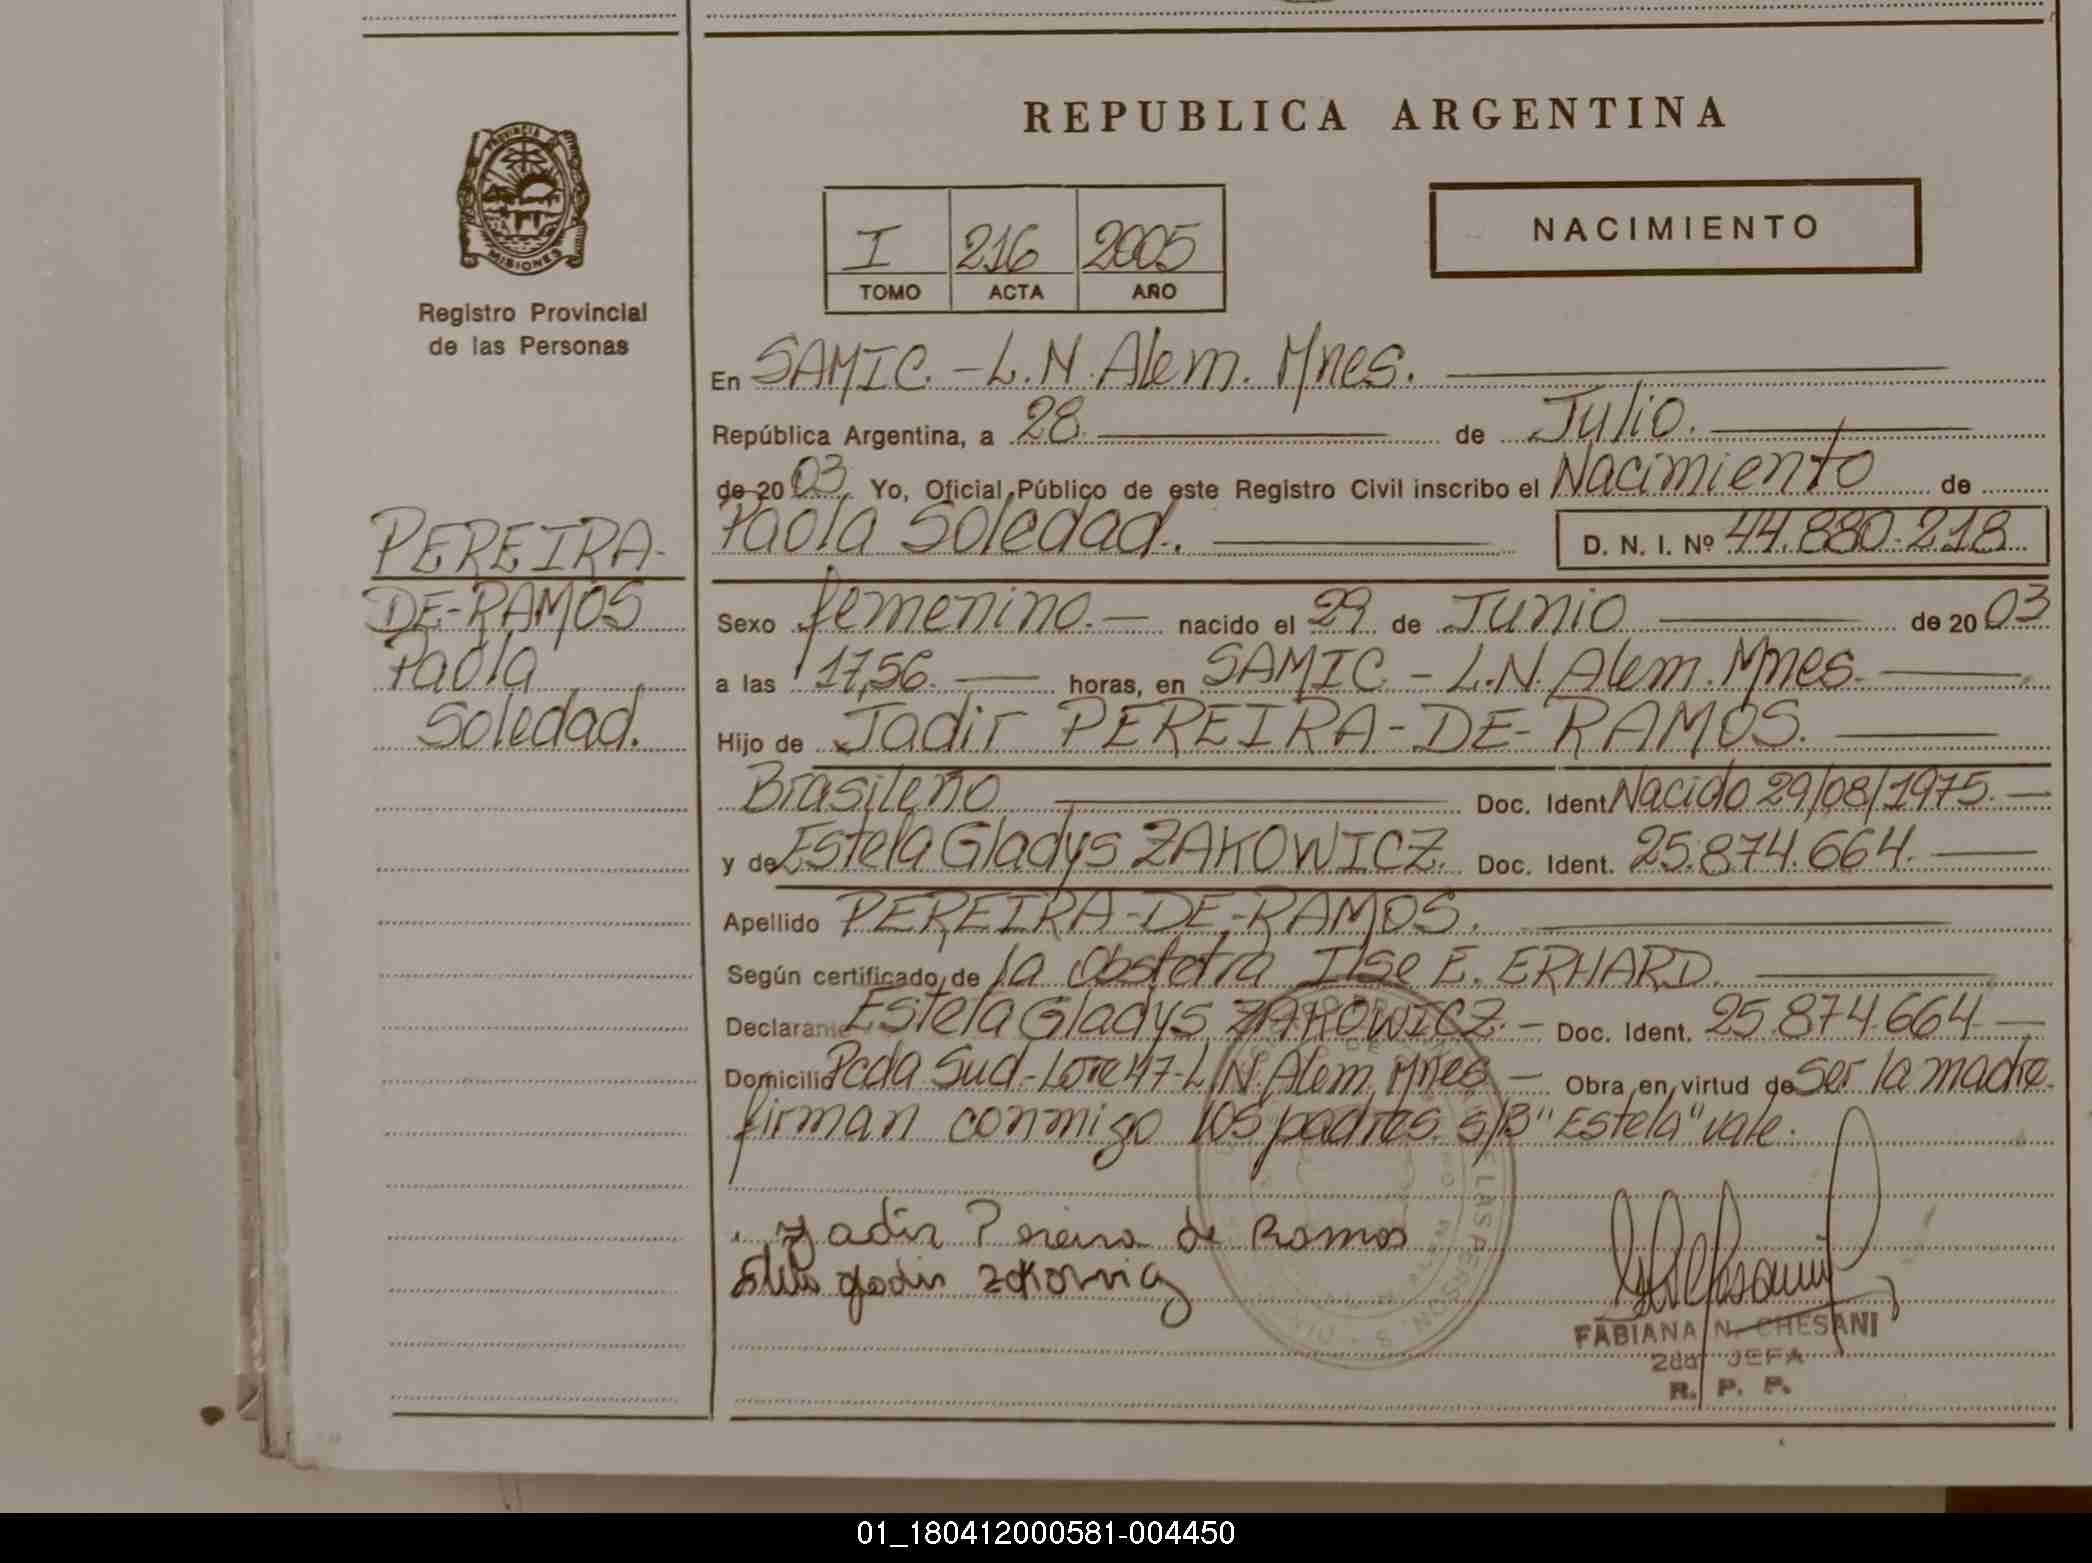 REPUBLICA ARGENTINA
PROVINCIA
MISIONES
Registro Provincial
de las Personas
I 216 2005
TOMO ACTA AÑO
NACIMIENTO
En SAMIC. - L.N. Alem. Mnes.
República Argentina, a 28 de Julio.
de 2003. Yo, Oficial Público de este Registro Civil inscribo el Nacimiento de
Paola Soledad. D. N. I. Nº 44.880.218
PEREIRA-
DE-RAMOS
Paola
Soledad.
Sexo femenino. - nacido el 29 de Junio de 2003
a las 17,56. horas, en SAMIC - L.N. Alem. Mnes.
Hijo de Jadir PEREIRA-DE-RAMOS.
Brasileño Doc. Ident. Nacido 29/08/1975.
y de Estela Gladys ZAKOWICZ. Doc. Ident. 25.874.664.
Apellido PEREIRA-DE-RAMOS.
Según certificado de la Obstetra Ilse E. ERHARD.
Declarante Estela Gladys ZAKOWICZ. - Doc. Ident. 25.874.664
Domicilio Pcda Sud-Lote 47-L.N. Alem. Mnes. - Obra en virtud de ser la madre.
firman conmigo los padres. s/B "Estela" vale.
Jadir Pereira de Ramos
FABIANA N. CHESANI
2da JEFA
R. P. P.
01_180412000581-004450